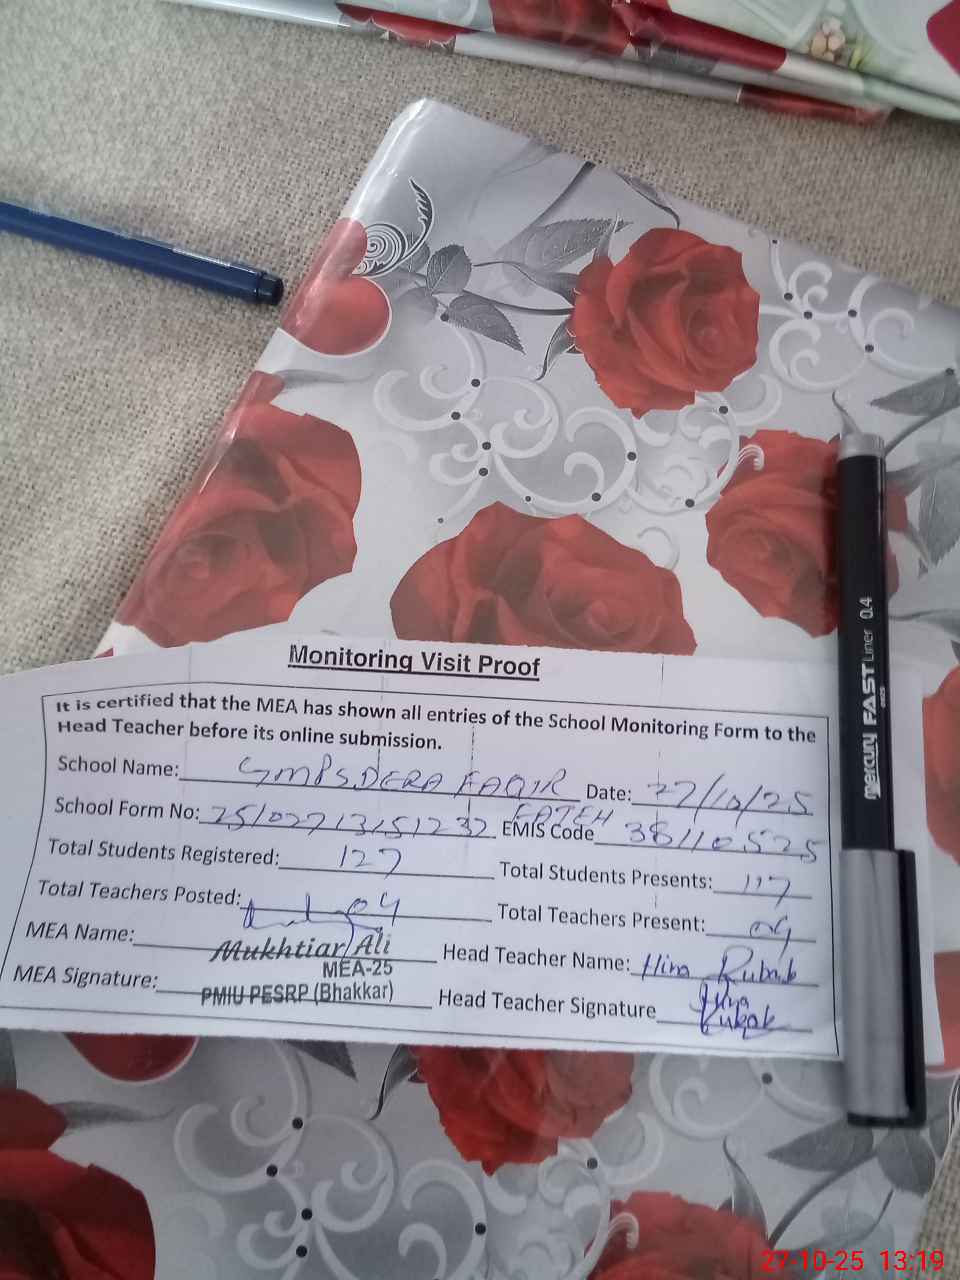 Monitoring Visit Proof
It is certified that the MEA has shown all entries of the School Monitoring Form to the
Head Teacher before its online submission.
School Name: GMPS DERA FAQIR FATEH Date: 27/10/25
School Form No: 25102713151232 EMIS Code 38110525
Total Students Registered: 127 Total Students Presents: 117
Total Teachers Posted: 04 Total Teachers Present: 04
MEA Name: Mukhtiar Ali Head Teacher Name: Hina Rubab
MEA-25
MEA Signature: PMIU PESRP (Bhakkar) Head Teacher Signature Hina
Rubab
MERCURY FAST Liner 0.4
27-10-25 13:19